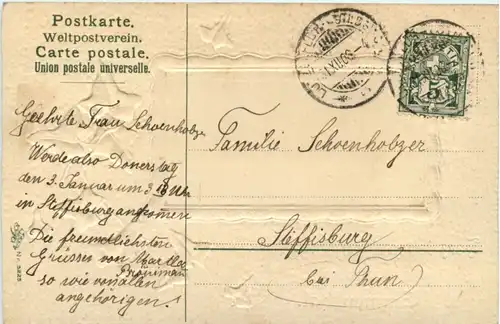 Postkarte.
Weltpostverein.
Carte postale.
Union postale universelle.
Geehrte Frau Schoenholzer
Werde also Donerstag
den 3. Januar um 3 Uhr
in Steffisburg ankomen
Die freundlichsten
Grüssen von Martha
so wie von allen
angehörigen.
Familie Schoenholzer
Steffisburg
bei Thun